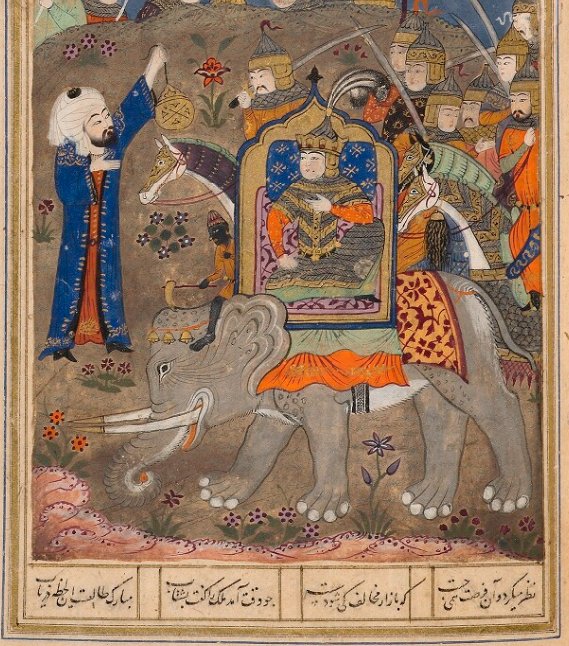 نظر میکرد و آن فرصت همی جست که بازار مخالف کی شود سست چو وقت آمد ملک را گفت بشتاب مبارک طالعست این لحظه دریاب